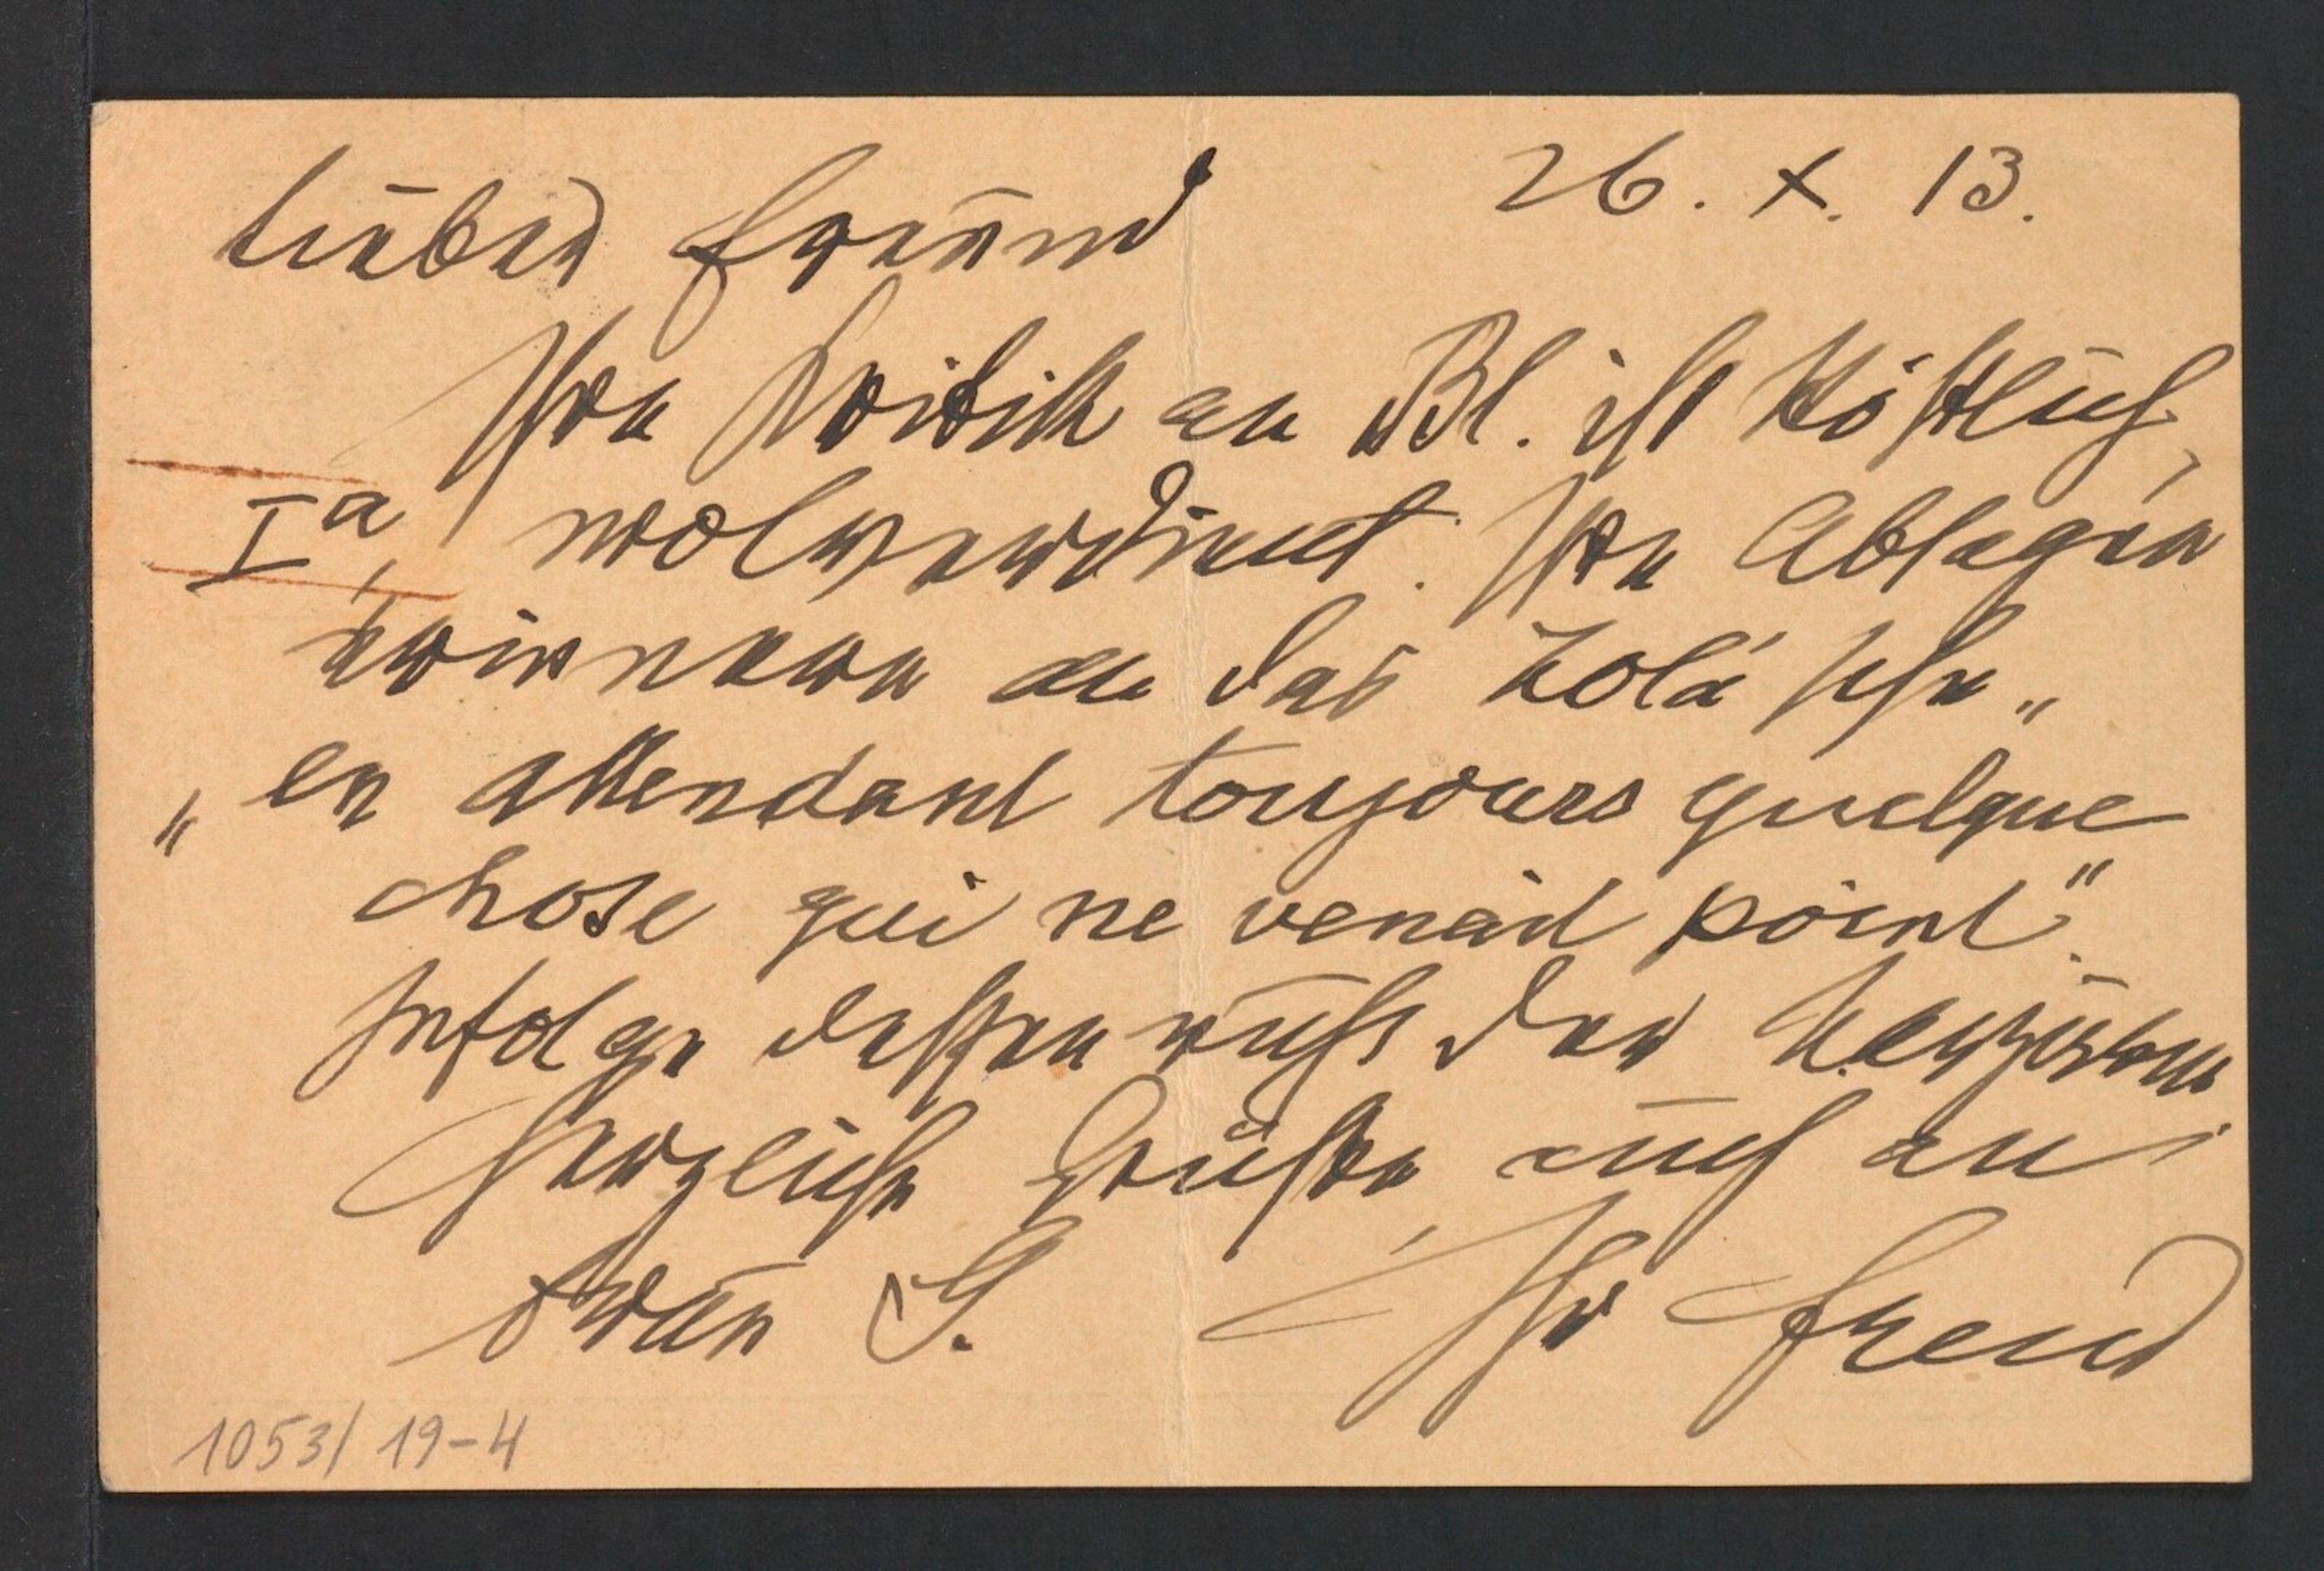 26. X. 13.
Lieber Freund
Ihre Kritik an Bl. ist köstlich,
Ia, wolverdient. Ihre Ablagen
erinnern an das Zola'sche „
„en attendant toujours quelque
chose qui ne venait point“.
Infolge dessen auch der
Herzliche Grüße, auch an
Frau G. Ihr Freud
1053/19-4